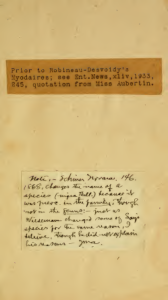 Prior to Robineau-Desvoidy's
Myodaires; see Ent.News,xliv,1933,
245, quotation from Miss Aubertin.
Note - Schiner Novara, 146,
1868, changes the name of a
species because it
was preocc. in the family, though
not in the genus - just as
Wiedemann changed name of Say's
species for the same reason, I
believe, though he did not explain
his reasons -